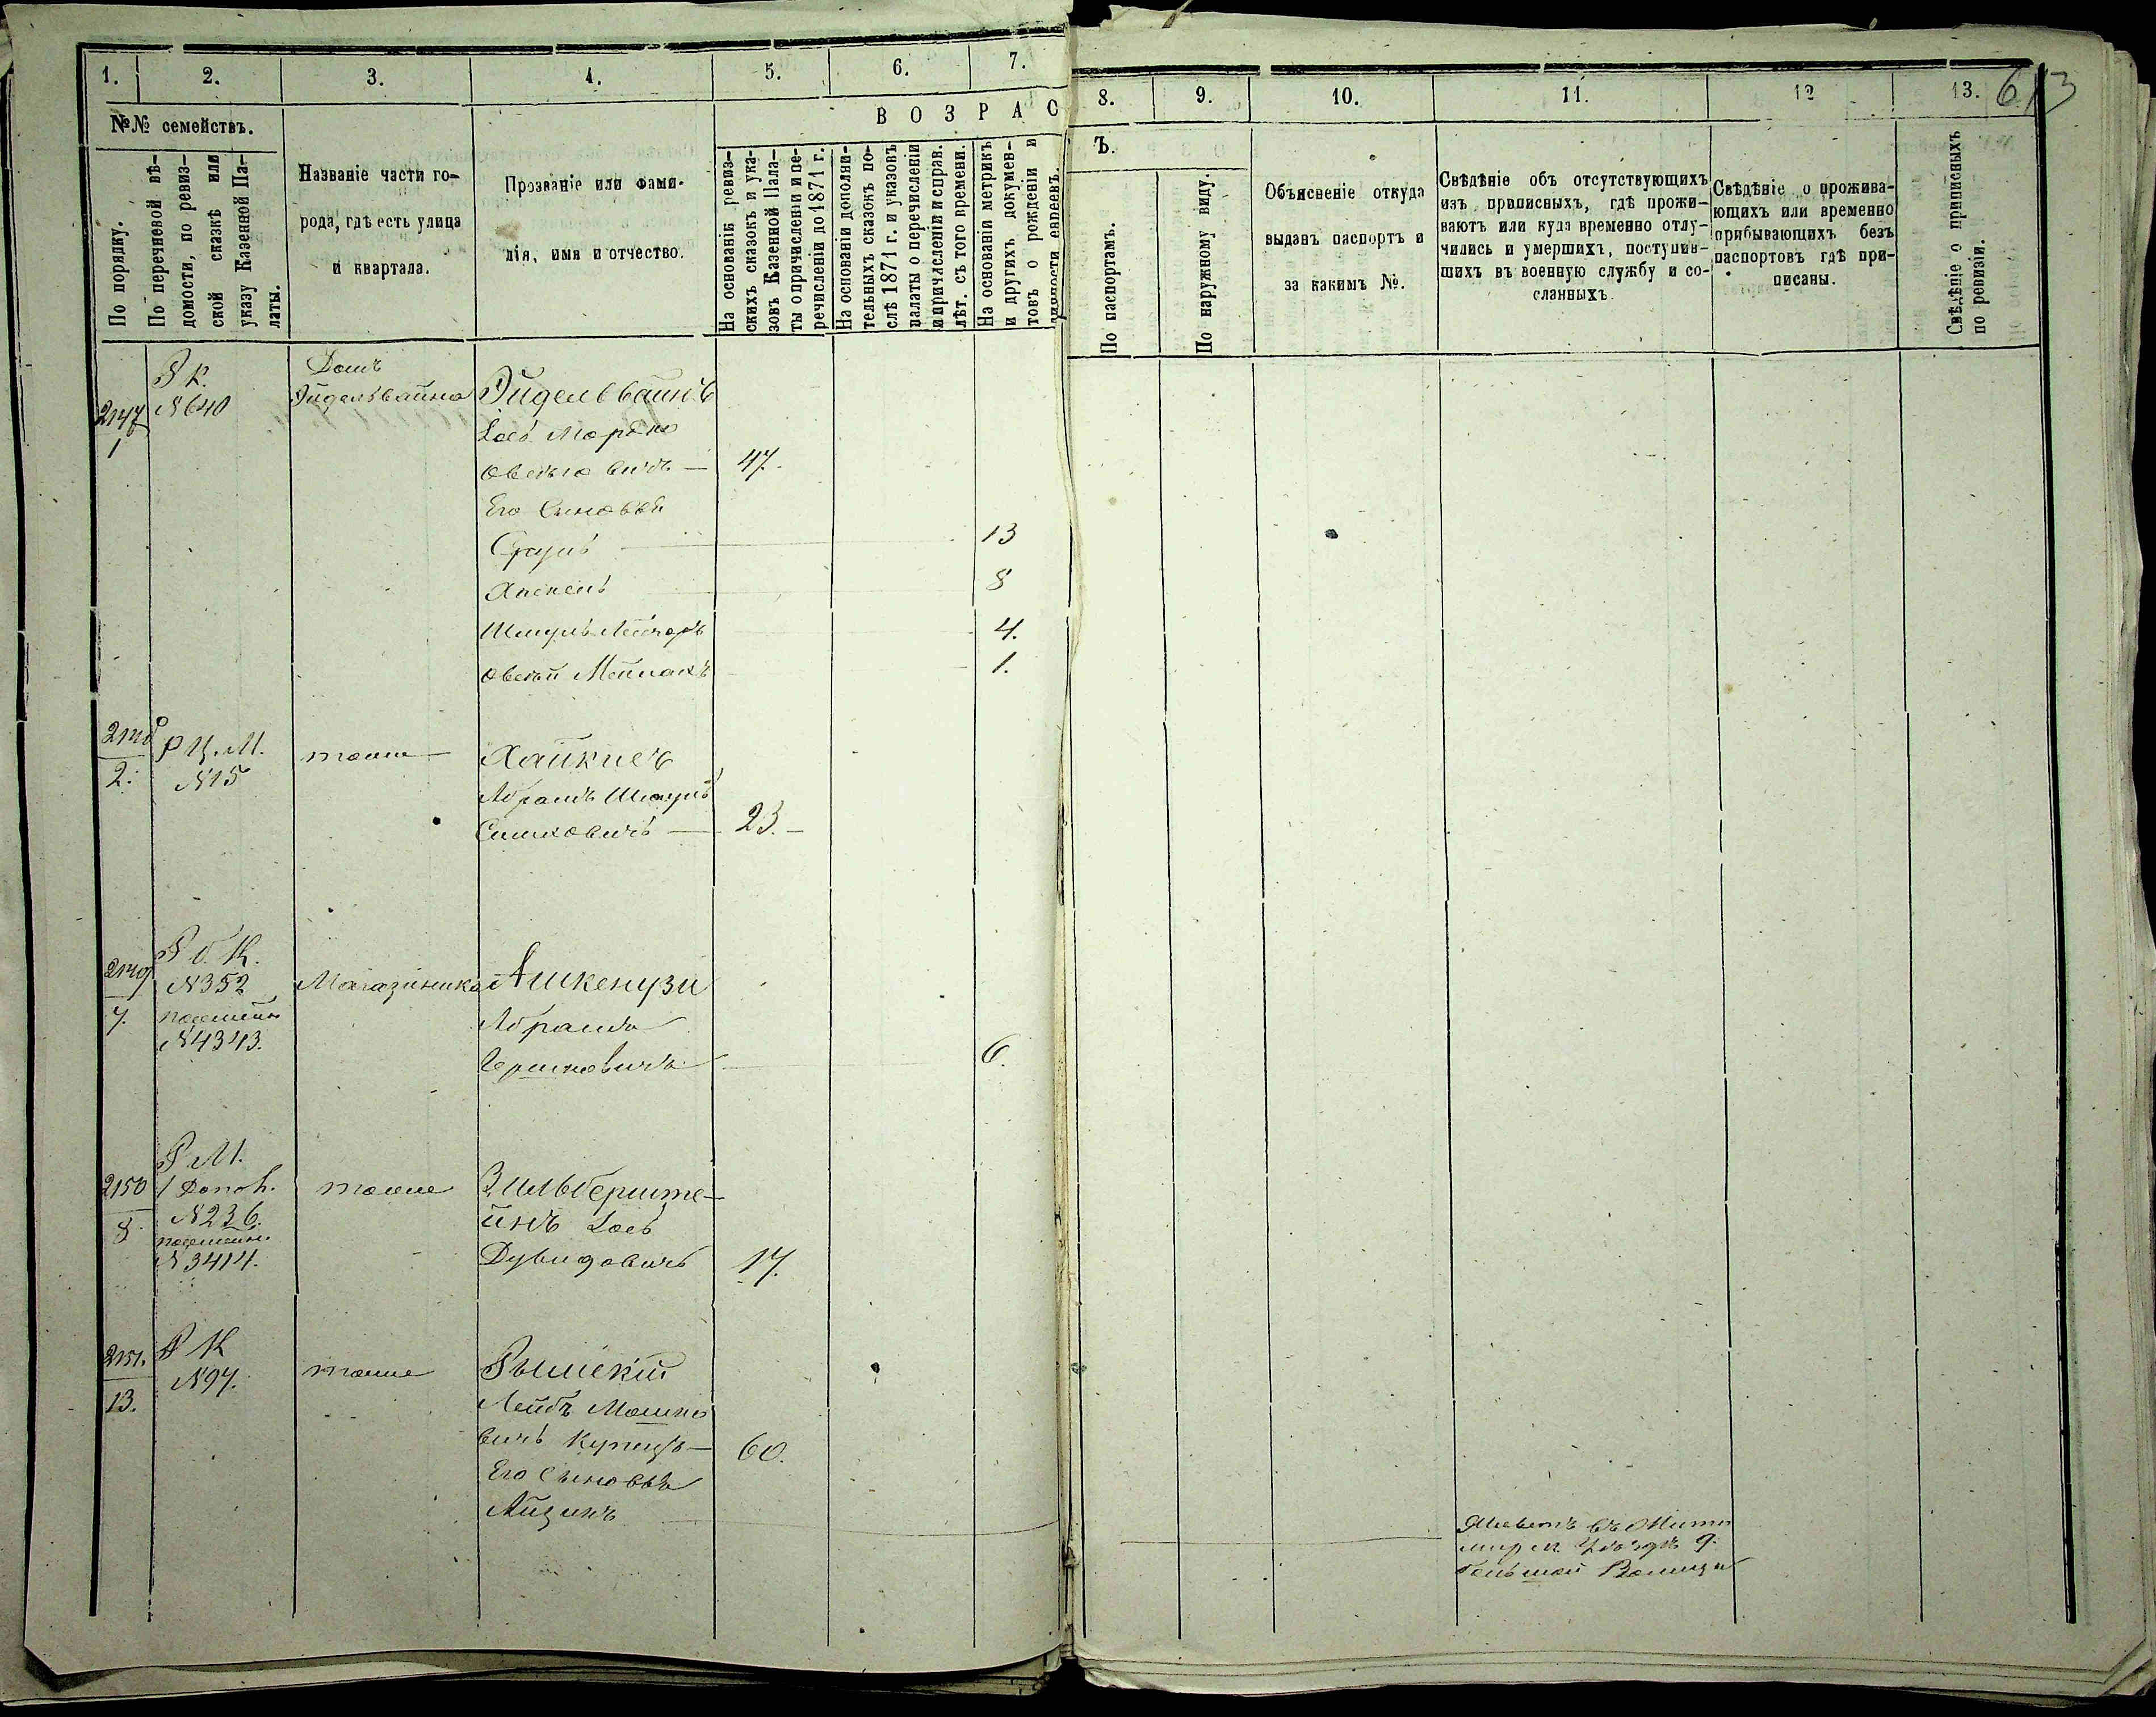 1. 2. 3. 4. 5. 6. 7. 8. 9. 10. 11. 12 13. 613
№№ семействъ.
По порядку.
По перечневой вѣ-
домости, по ревиз-
ской сказкѣ или
указу Казенной Па-
латы.
Названіе части го-
рода, гдѣ есть улица
и квартала.
Прозваніе или фами-
лія, имя и отчество.
ВОЗРАС
Ъ.
На основаніи ревиз-
скихъ сказокъ и ука-
зовъ Казенной Пала-
ты о причисленіи и пе-
речисленіи до 1871 г.
На основаніи дополни-
тельныхъ сказокъ по-
слѣ 1871 г. и указовъ
палаты о перечисленіи
и причисленіи и справ.
лѣт. съ того времени.
На основаніи метрикъ
и другихъ докумен-
товъ о рожденіи и
личности евреевъ.
По паспортамъ.
По наружному виду.
Объясненіе откуда
выданъ паспортъ и
за какимъ №.
Свѣдѣніе объ отсутствующихъ
изъ приписныхъ, гдѣ прожи-
ваютъ или куда временно отлу-
чились и умершихъ, поступив-
шихъ въ военную службу и со-
сланныхъ.
Свѣдѣніе о прожива-
ющихъ или временно
прибывающихъ безъ
паспортовъ гдѣ при-
писаны.
Свѣдѣніе о приписныхъ
по ревизіи.
2147
1
Р К.
№640
Домъ
Эйдельвайна
Эйдельвайнъ
Іось Мордко
Овсѣевичъ — 47.
Его Сыновья
Сруль 13
Хаскель 8
Шмуль Лейзоръ 4.
Овсѣй 1.
2148
2.
Р Ц. М.
№15
тоже
Хайкисъ
Абрамъ Шмуль
Симховичъ — 23.
2149
7.
Р б. К.
№352
посемейн
№4343.
Магазинника
Ашкенузи
Абрамъ
Гершковичъ 6.
2150
8
Р М.
1 Допол.
№236.
посемейн.
№3414.
тоже
Зильберште-
йнъ Іось
Дувидовичъ 17.
2151.
13.
Р К
№97.
тоже
Рымскій
Лейбъ Мошко
вичъ Купецъ — 60.
Его Сыновья
Айзикъ
Живетъ въ Жито
мирск Уѣздѣ д.